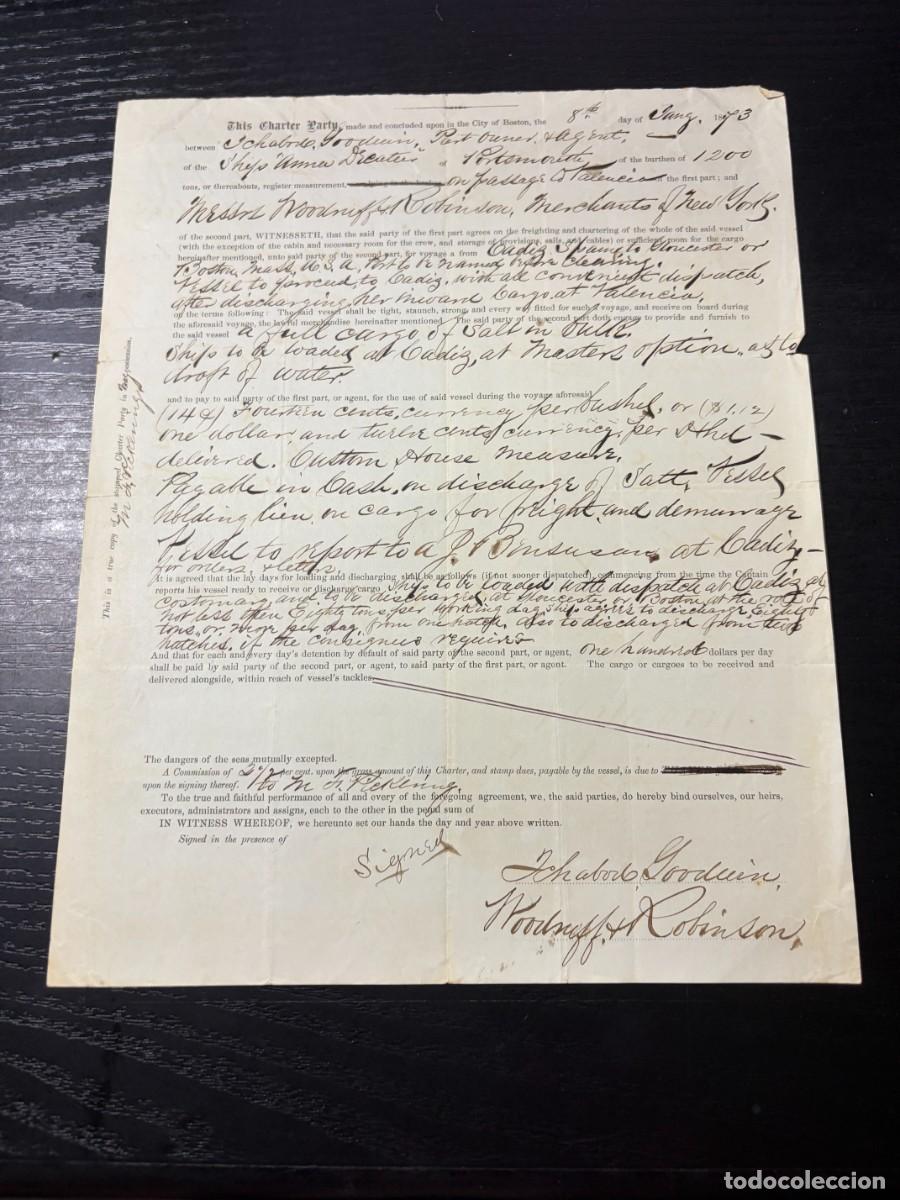 This Charter Party, made and concluded upon in the City of Boston, the 8th day of Jany. 1873
between Ichabod Goodwin, Part Owner & Agent,
of the Ship "Anna Decatur" of Portsmouth, of the burthen of 1200
tons, or thereabouts, register measurement, on passage to Valencia of the first part; and
Messrs Woodruff & Robinson, Merchants of New York.
of the second part, WITNESSETH, that the said party of the first part agrees on the freighting and chartering of the whole of the said vessel
(with the exception of the cabin and necessary room for the crew, and storage of provisions, sails, and cables) or sufficient room for the cargo
hereinafter mentioned, unto said party of the second part, for voyage a from Cadiz, Spain to Gloucester or
Boston, Mass, U.S.A, Port to be named before clearing.
Vessel to proceed to Cadiz, with all convenient dispatch,
after discharging her inward Cargo, at Valencia,
on the terms following: The said vessel shall be tight, staunch, strong, and every way fitted for such a voyage, and receive on board during
the aforesaid voyage, the lawful merchandise hereinafter mentioned. The said party of the second part doth engage to provide and furnish to
the said vessel a full cargo of Salt in bulk.
Ship to be loaded at Cadiz, at Masters option, as to
draft of water.
and to pay to said party of the first part, or agent, for the use of said vessel during the voyage aforesaid
(14¢) Fourteen cents, currency, per bushel, or ($1.12)
one dollar and twelve cents, currency, per Hhd –
delivered. Custom House measure.
Payable in Cash, on discharge of Salt, Vessel
holding lien, on cargo for freight, and demurrage
Vessel to report to A J Bensusan, at Cadiz –
for orders, & letters,
It is agreed that the lay days for loading and discharging shall be as follows (if not sooner dispatched) commencing from the time the Captain
reports his vessel ready to receive or discharge cargo. Ship to be loaded with dispatch at Cadiz as
customary, and to be discharged, at Gloucester, or Boston at the rate of
not less then Eighty tons, per working day, Ship agrees to discharge Eighty
tons, or more per day, from one hatch, also to discharged from two
hatches, if the consignees requires
And that for each and every day's detention by default of said party of the second part, or agent, one hundred dollars per day
shall be paid by said party of the second part, or agent, to said party of the first part, or agent. The cargo or cargoes to be received and
delivered alongside, within reach of vessel's tackles.
The dangers of the seas mutually excepted.
A Commission of per cent. upon the gross amount of this Charter, and stamp dues, payable by the vessel, is due to
upon the signing thereof. to M. F. Pickering.
To the true and faithful performance of all and every of the foregoing agreement, we, the said parties, do hereby bind ourselves, our heirs,
executors, administrators and assigns, each to the other in the penal sum of
IN WITNESS WHEREOF, we hereunto set our hands the day and year above written.
Signed in the presence of
Signed
Ichabod Goodwin,
Woodruff & Robinson,
This is a true copy of the signed Charter Party in
M F Pickering
todocoleccion